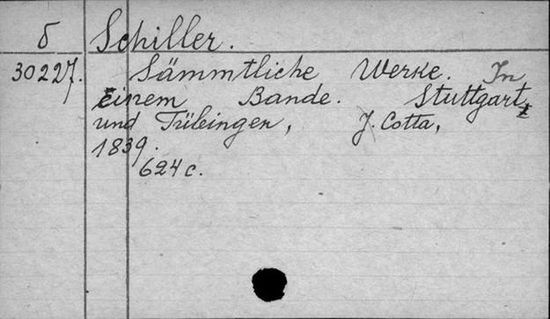 б Schiller.
30227. Sämmtliche Werke. In
einem Bande. Stuttgart
und Tübingen, J. Cotta,
1839.
624 c.